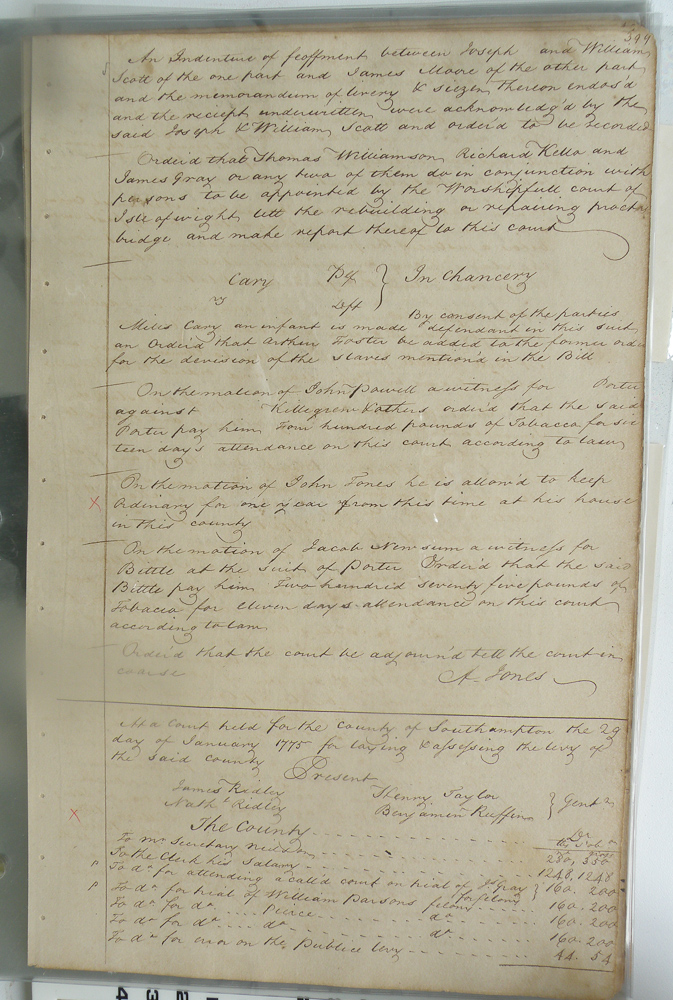 399
An Indenture of feoffment between Joseph and William
Scott of the one part and James Moore of the other part
and the memorandum of livery & siezen thereon indos'd
and the reciept underwritten were acknowledg'd by the
said Joseph & William Scott and order'd to be recorded
Order'd that Thomas Williamson Richard Kello and
James Gray or any two of them do in conjunction with
persons to be appointed by the Worshipfull court of
Isle of wight lett the rebuilding or repairing proctr
bridge and make report thereof to this court
Cary Plf } In Chancery
vs Dft
By consent of the parties
Miles Cary an infant is made defendant in this suit
an Order'd that Arthur Foster be added to the former orde
for the devision of the slaves mention'd in the Bill
On the motion of John Powell a witness for Porter
against Killegrew & others order'd that the said
Porter pay him Four hundred pounds of Tobacco for six
teen days attendance on this court according to law
On the motion of John Jones he is allow'd to keep
x Ordinary for one year from this time at his house
in this county
On the motion of Jacob Newsum a witness for
Bittle at the suit of Porter Order'd that the said
Bittle pay him Two hundred seventy five pounds of
Tobacco for eleven days attendance on this court
according to law
Order'd that the court be adjourn'd till the court in
coarse
A. Jones
At a Court held for the county of Southampton the 29
day of January 1775 for laying & assessing the levy of
the said county
Present
James Ridley Henry Taylor } Gentn
Nathl Ridley Benjamin Ruffin
x The County Dr
To mr Secretary Nelson 280, 350
To the Clerk his Salary 1248, 1248
To do for attending a call'd court on trial of Js Gray for felony } 160. 200
To do for trial of William Parsons felony 160. 200
To do for do Peirce do 160. 200
To do for do do do 160. 200
To do for error on the Publice levy 44. 54